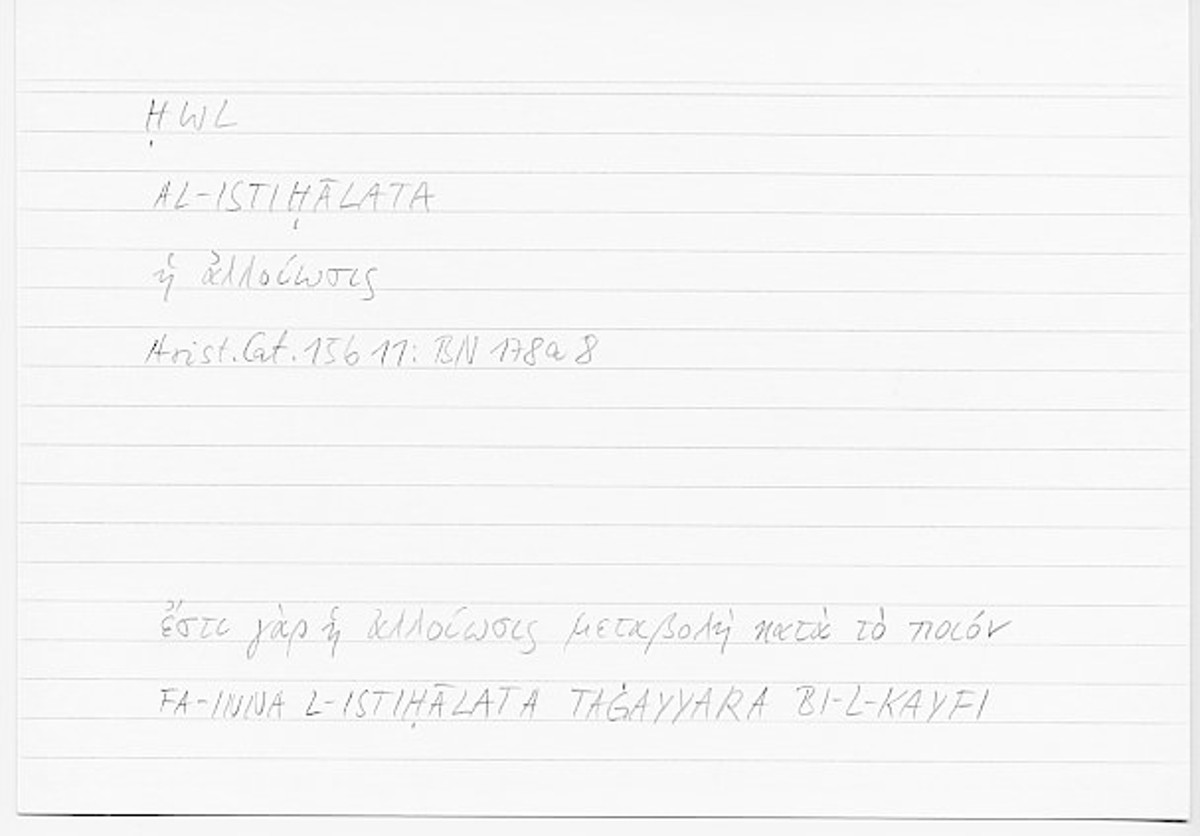 ḤWL
AL-ISTIḤĀLATA
ἡ ἀλλοίωσις
Arist. Cat. 15b 11: BN 178a 8
ἔστι γὰρ ἡ ἀλλοίωσις μεταβολὴ κατὰ τὸ ποιόν
FA-INNA L-ISTIḤĀLATA TAĠAYYARA BI-L-KAYFI